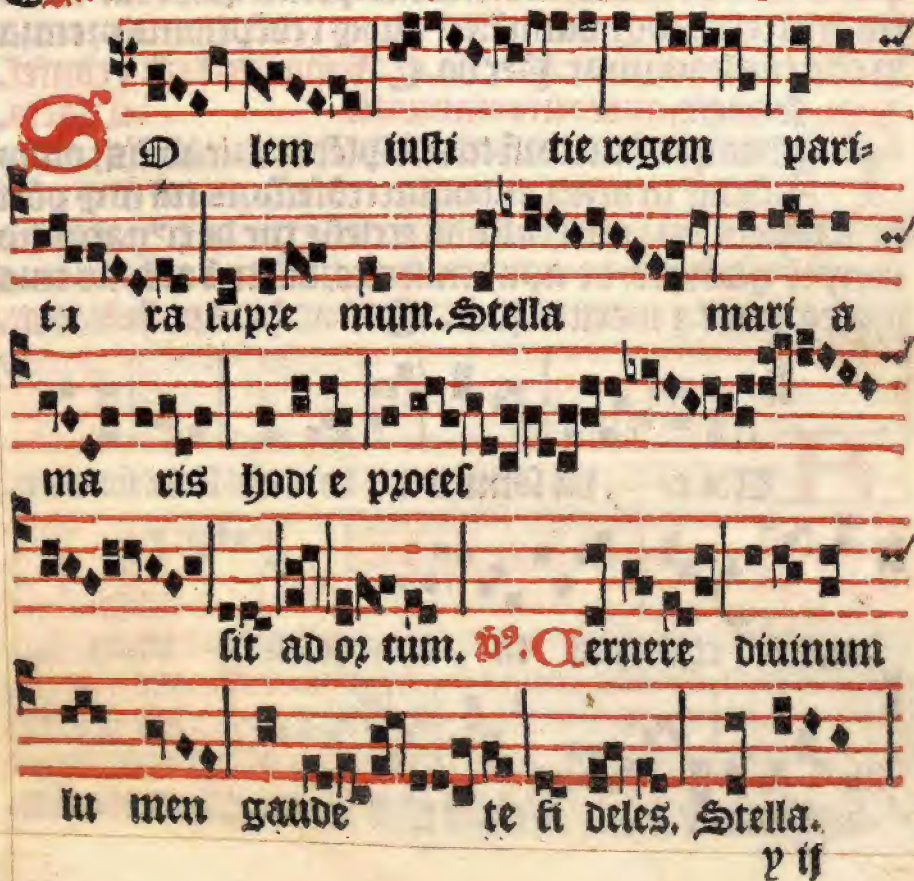 SO lem iusti tie regem pari-
tu ra supre mum. Stella mari a
ma ris hodi e proces
sit ad or tum. V9. Cernere diuinum
lu men gaude te fi deles. Stella.
y ij